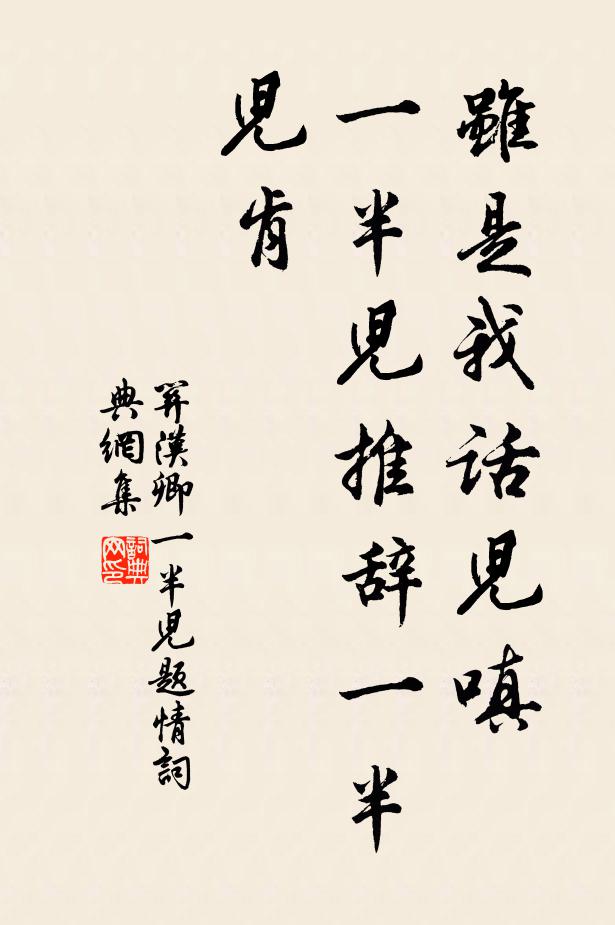 雖是我话兒嗔
一半兒推辞一半
兒肯
關漢卿一半兒题情詞
典網集
詞典
网印